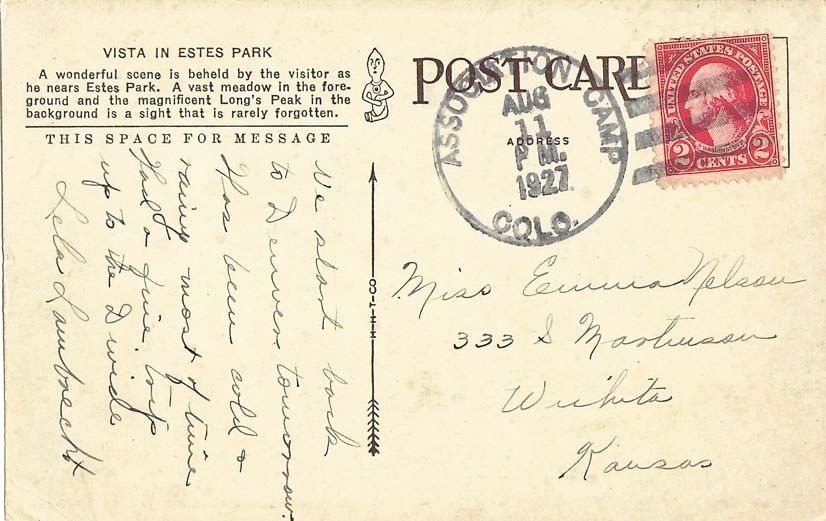 VISTA IN ESTES PARK
A wonderful scene is beheld by the visitor as
he nears Estes Park. A vast meadow in the fore-
ground and the magnificent Long's Peak in the
background is a sight that is rarely forgotten.
THIS SPACE FOR MESSAGE
We start back
to Denver tomorrow.
Has been cold &
rainy most of time
Had a fine trip
up to the Divide
Lela Lambrecht
H-H-T-CO
POST CARD
ADDRESS
ASSOCIATION CAMP
AUG
11
P M.
1927
COLO.
UNITED STATES POSTAGE
2 CENTS 2
Miss Emma Nelson
333 S Martinson
Wichita
Kansas